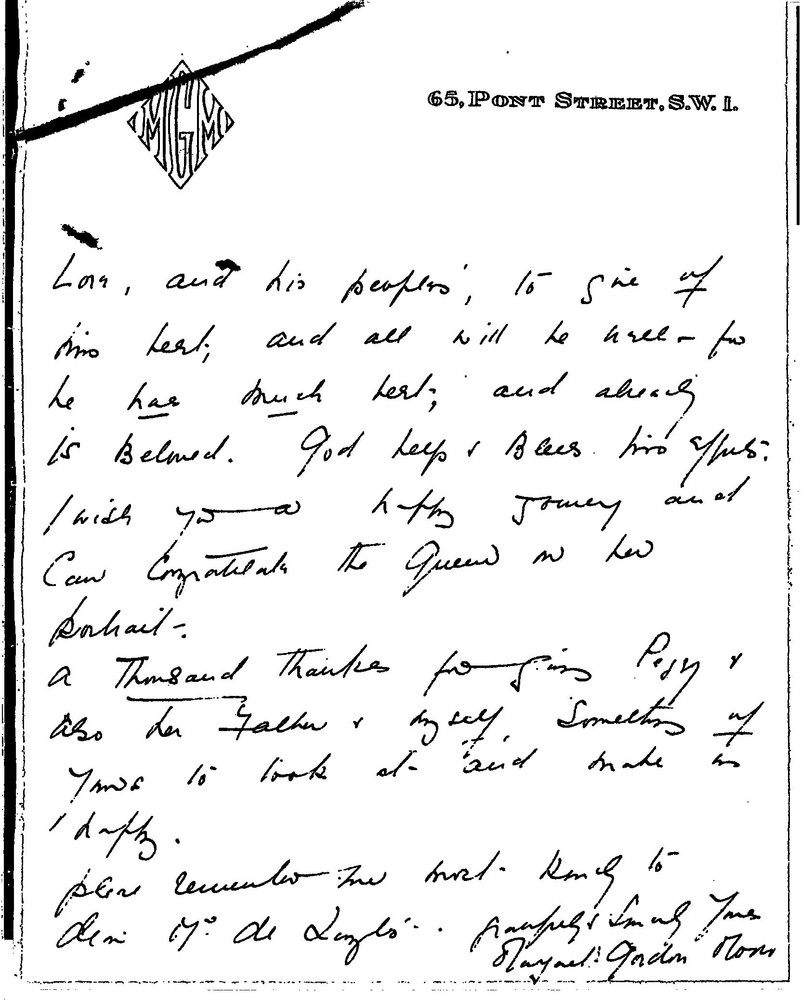 MGM
65, PONT STREET, S.W. 1.
Love, and his peoples', to give of
his best; and all will be well – for
he has much best; and already
is Beloved. God help & Bless his efforts.
I wish you a happy journey and
Can Congratulate the Queen on her
portrait –.
A Thousand thanks for giving Peggy &
also her Father & myself, Something of
Yours to look at – and make us
happy.
please remember me most kindly to
dear Mrs de Laszlo. gratefully & Sincerely Yours
Margaret Gordon Moore